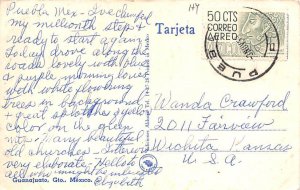 Puebla Mex - I've climbed
my millionth step &
ready to start again.
Today drove along the
roads lovely with blue
& purple morning glories
with white flowering
trees in background
& great splotches yellow
color on the green
mts. Many beautiful
old churches. Interiors
very elaborate. Hello to
all who might be interested
Elizabeth
Guanajuato, Gto., México.
Tarjeta
50 CTS
CORREO
AEREO
PUEB
Wanda Crawford
2011 Fairview
Wichita Kansas
U.S.A.